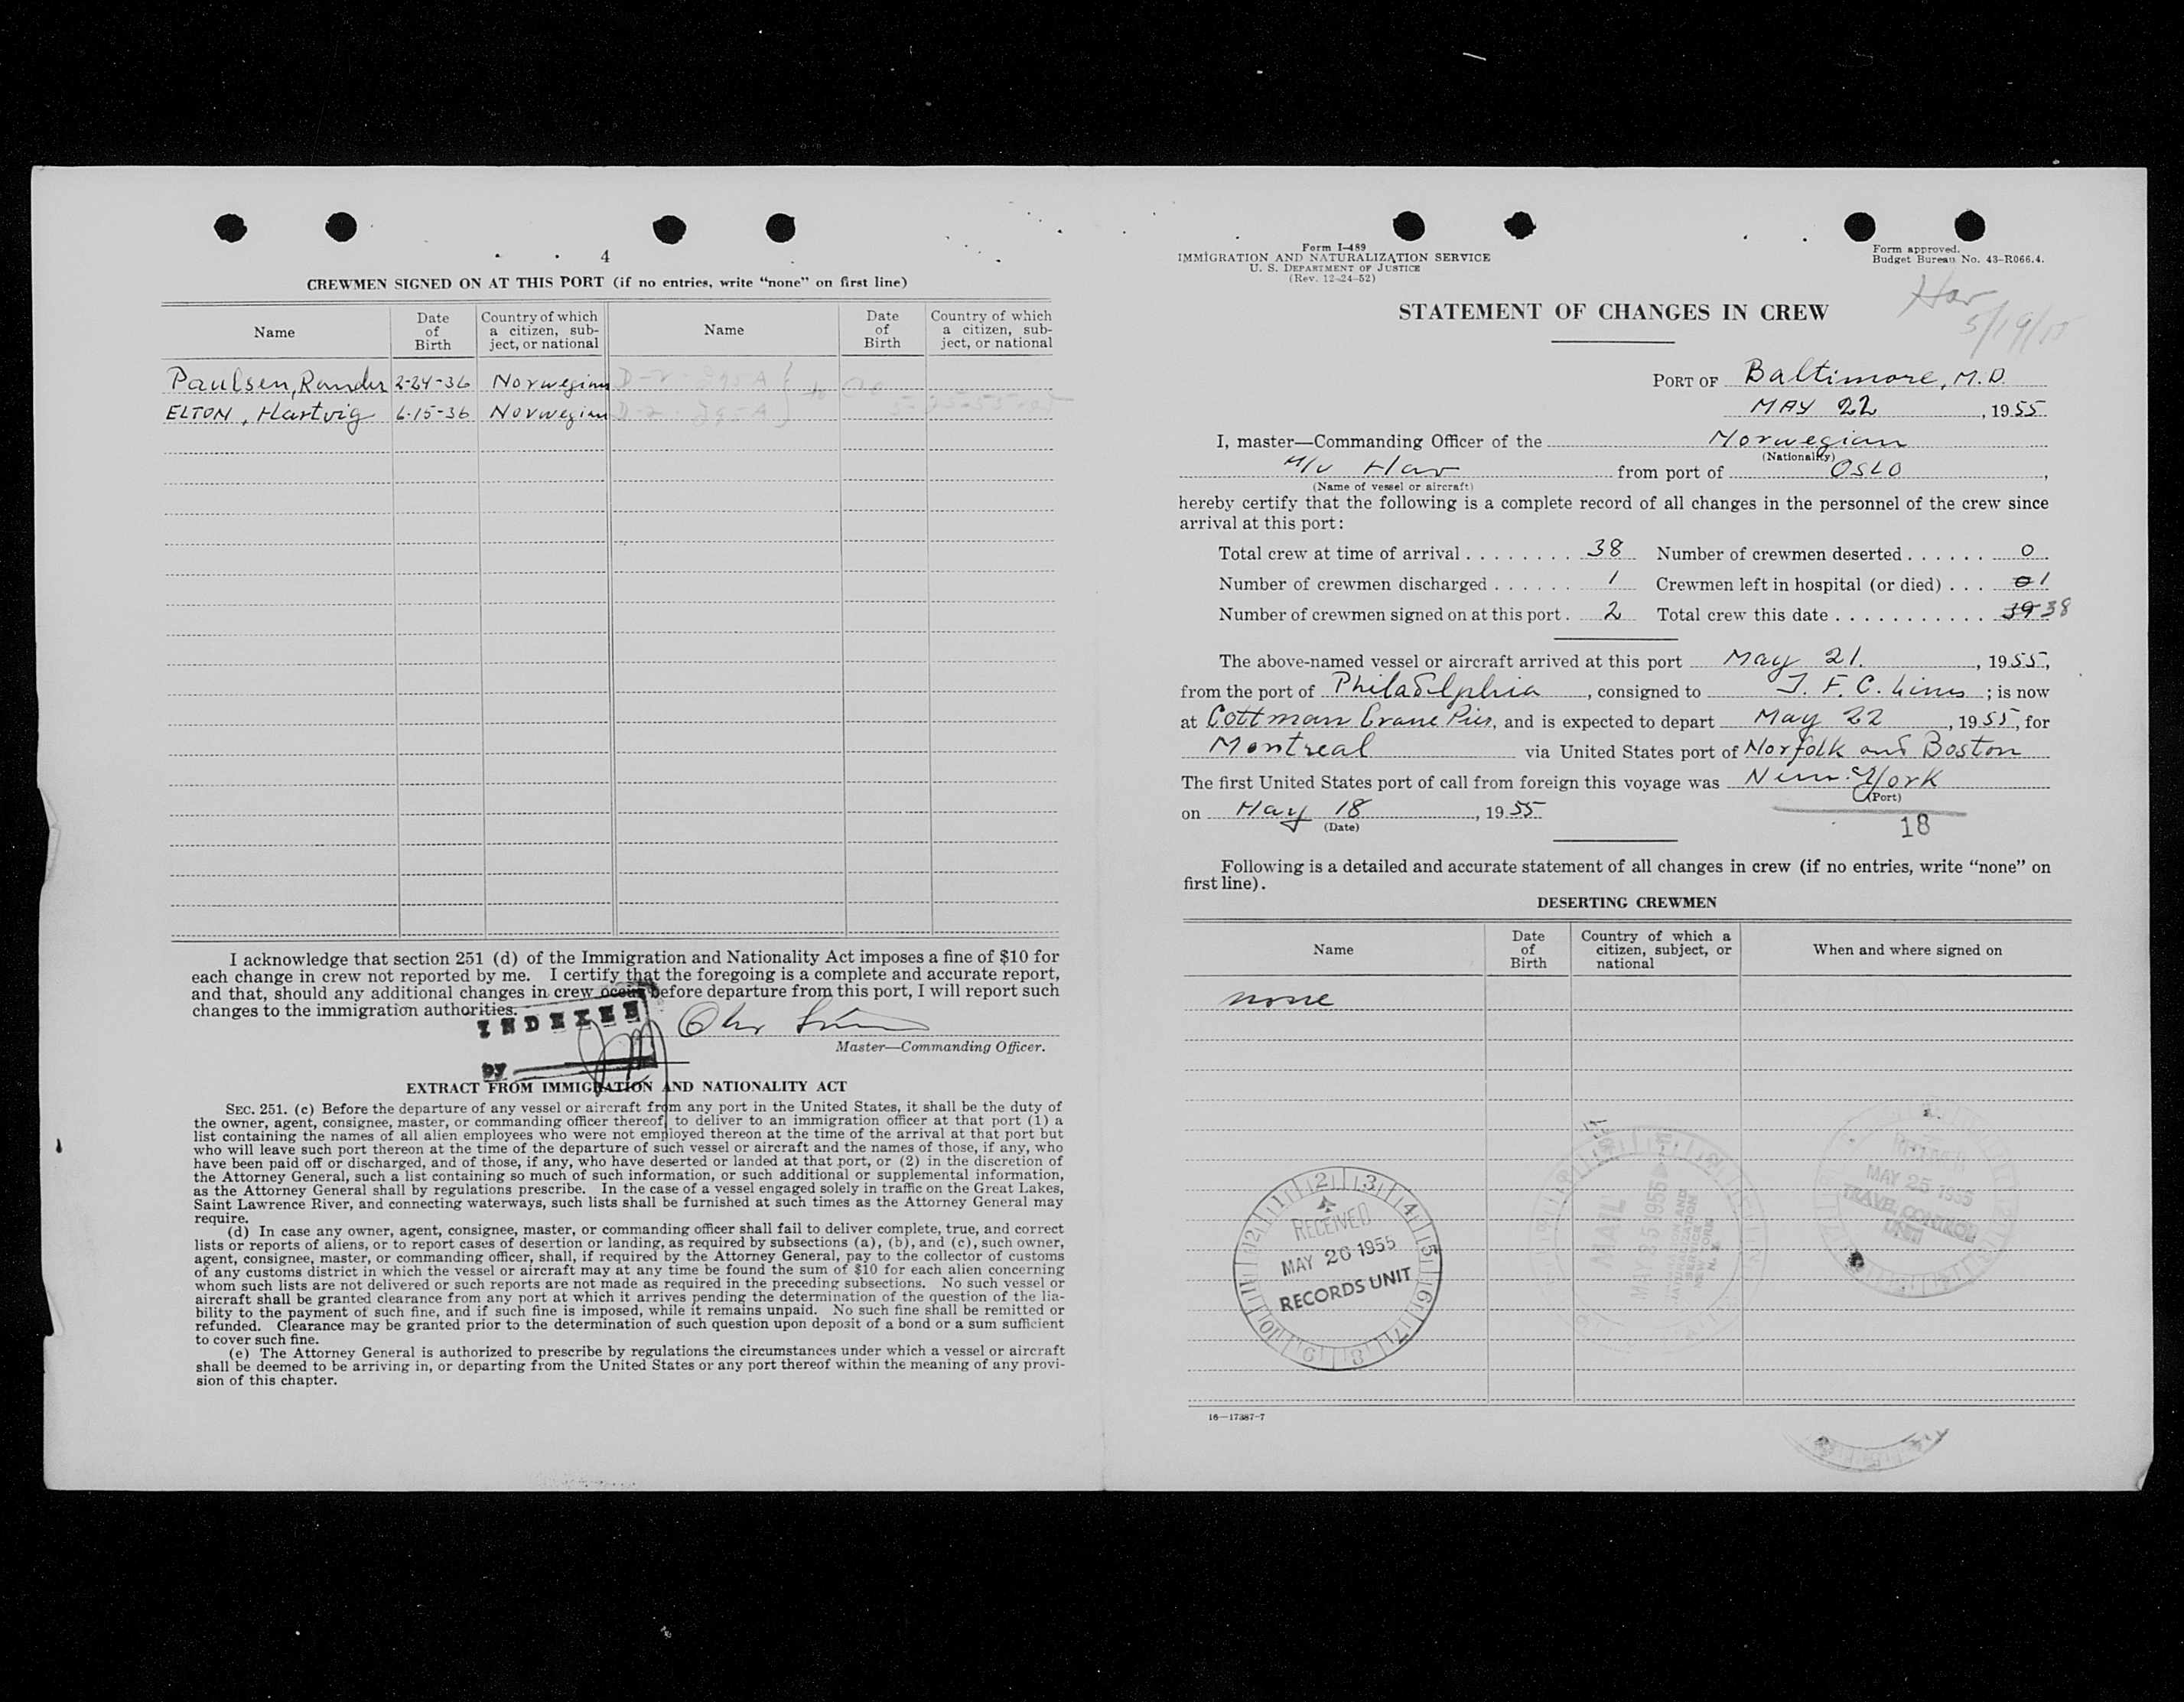 4
CREWMEN SIGNED ON AT THIS PORT (if no entries, write “none” on first line)
Name Date of Birth Country of which a citizen, subject, or national Name Date of Birth Country of which a citizen, subject, or national
Paulsen, 2-24-36 Norwegian
ELTON, Hartvig 6-15-36 Norwegian
I acknowledge that section 251 (d) of the Immigration and Nationality Act imposes a fine of $10 for
each change in crew not reported by me. I certify that the foregoing is a complete and accurate report,
and that, should any additional changes in crew occur before departure from this port, I will report such
changes to the immigration authorities.
INDEXED
by
Master—Commanding Officer.
EXTRACT FROM IMMIGRATION AND NATIONALITY ACT
SEC. 251. (c) Before the departure of any vessel or aircraft from any port in the United States, it shall be the duty of
the owner, agent, consignee, master, or commanding officer thereof to deliver to an immigration officer at that port (1) a
list containing the names of all alien employees who were not employed thereon at the time of the arrival at that port but
who will leave such port thereon at the time of the departure of such vessel or aircraft and the names of those, if any, who
have been paid off or discharged, and of those, if any, who have deserted or landed at that port, or (2) in the discretion of
the Attorney General, such a list containing so much of such information, or such additional or supplemental information,
as the Attorney General shall by regulations prescribe. In the case of a vessel engaged solely in traffic on the Great Lakes,
Saint Lawrence River, and connecting waterways, such lists shall be furnished at such times as the Attorney General may
require.
(d) In case any owner, agent, consignee, master, or commanding officer shall fail to deliver complete, true, and correct
lists or reports of aliens, or to report cases of desertion or landing, as required by subsections (a), (b), and (c), such owner,
agent, consignee, master, or commanding officer, shall, if required by the Attorney General, pay to the collector of customs
of any customs district in which the vessel or aircraft may at any time be found the sum of $10 for each alien concerning
whom such lists are not delivered or such reports are not made as required in the preceding subsections. No such vessel or
aircraft shall be granted clearance from any port at which it arrives pending the determination of the question of the lia-
bility to the payment of such fine, and if such fine is imposed, while it remains unpaid. No such fine shall be remitted or
refunded. Clearance may be granted prior to the determination of such question upon deposit of a bond or a sum sufficient
to cover such fine.
(e) The Attorney General is authorized to prescribe by regulations the circumstances under which a vessel or aircraft
shall be deemed to be arriving in, or departing from the United States or any port thereof within the meaning of any provi-
sion of this chapter.
Form I-489
IMMIGRATION AND NATURALIZATION SERVICE
U. S. DEPARTMENT OF JUSTICE
(Rev. 12-24-52)
Form approved.
Budget Bureau No. 43-R066.4.
Hav
5/19/55
STATEMENT OF CHANGES IN CREW
PORT OF Baltimore, M.D.
MAY 22, 1955
I, master—Commanding Officer of the Norwegian
(Nationality)
M/V Hav from port of OSLO,
(Name of vessel or aircraft)
hereby certify that the following is a complete record of all changes in the personnel of the crew since
arrival at this port:
Total crew at time of arrival . . . . . . . . 38 Number of crewmen deserted . . . . . . 0
Number of crewmen discharged . . . . . . 1 Crewmen left in hospital (or died) . . . 0 1
Number of crewmen signed on at this port . 2 Total crew this date . . . . . . . . . . . 39 38
The above-named vessel or aircraft arrived at this port May 21., 1955,
from the port of Philadelphia, consigned to J. F. C. Lines; is now
at Cottman Crane Pier, and is expected to depart May 22, 1955, for
Montreal via United States port of Norfolk and Boston
The first United States port of call from foreign this voyage was New York
(Port)
on May 18, 1955
(Date)
18
Following is a detailed and accurate statement of all changes in crew (if no entries, write “none” on
first line).
DESERTING CREWMEN
Name Date of Birth Country of which a citizen, subject, or national When and where signed on
none
RECEIVED
MAY 26 1955
RECORDS UNIT
MAIL
MAY 25 1955
IMMIGRATION AND
NATURALIZATION
SERVICE
NEW YORK
N. Y.
RECEIVED
MAY 25 1955
TRAVEL CONTROL
UNIT
16—17387-7